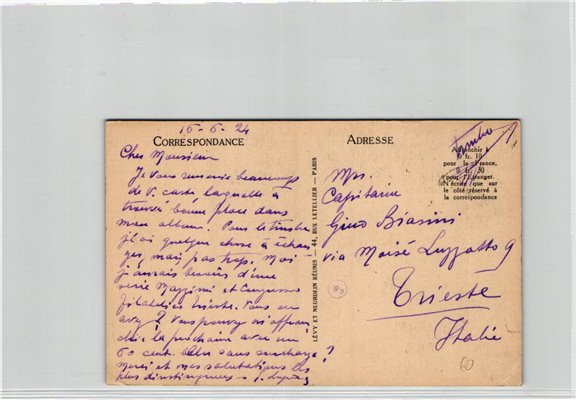 16-6-24
CORRESPONDANCE
Cher Monsieur
Je vous remercie beaucoup
de V. carte laquelle à
trouvé bonne place dans
mon album. Pour le timbre
j'ai quelque chose à échan
ger mais pas trop. Moi
j'aurais besoin d'une
serie Mazzini et Congresso
filatelico Trieste. Vous en
avez? Vous pouvez m'affran
chir la prochaine avec un
60 cent. sans surcharge?
Merci et mes salutations les
plus distinguées
LÉVY ET NEURDEIN RÉUNIS — 44, RUE LETELLIER — PARIS
ADRESSE
Timbre
Affranchir à
0 fr. 10
pour la France,
0 fr. 30
pour l'étranger.
N'écrire que sur
le côté réservé à
la correspondance
Mrs.
Capitaine
Gino Biasini
via Moisé Luzzatto 9
Trieste
Italie
60